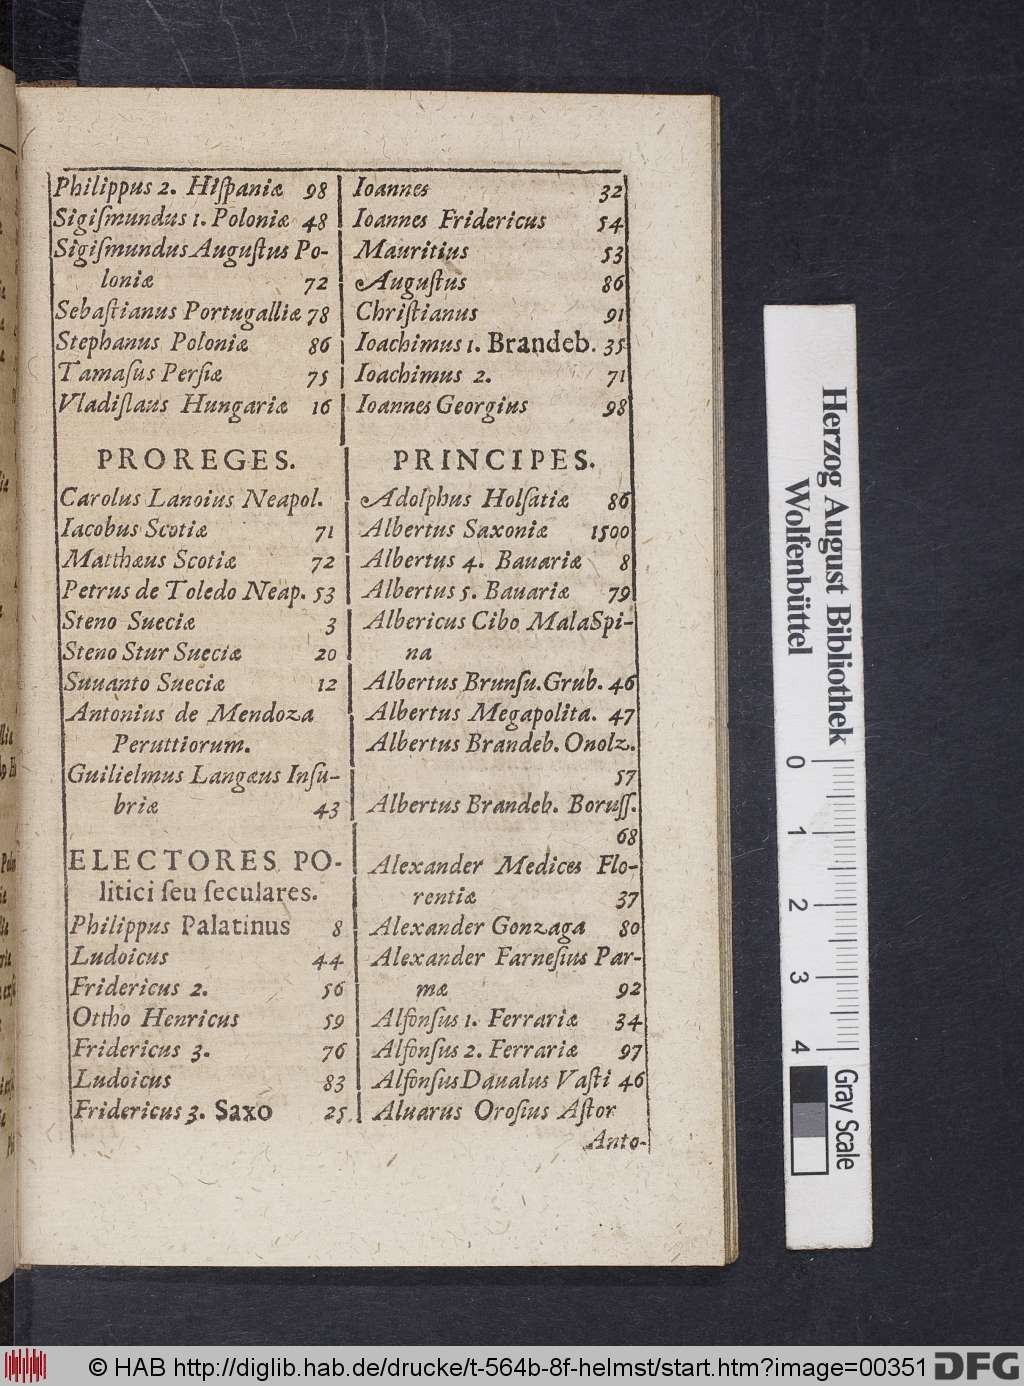 Philippus 2. Hiſpaniæ 98
Sigiſmundus 1. Poloniæ 48
Sigiſmundus Auguſtus Po-
loniæ 72
Sebaſtianus Portugalliæ 78
Stephanus Poloniæ 86
Tamaſus Perſiæ 75
Vladiſlaus Hungariæ 16
PROREGES.
Carolus Lanoius Neapol.
Iacobus Scotiæ 71
Matthæus Scotiæ 72
Petrus de Toledo Neap. 53
Steno Sueciæ 3
Steno Stur Sueciæ 20
Suuanto Sueciæ 12
Antonius de Mendoza
Peruttiorum.
Guilielmus Langæus Inſu-
briæ 43
ELECTORES PO-
litici ſeu ſeculares.
Philippus Palatinus 8
Ludoicus 44
Fridericus 2. 56
Ottho Henricus 59
Fridericus 3. 76
Ludoicus 83
Fridericus 3. Saxo 25
Ioannes 32
Ioannes Fridericus 54
Mauritius 53
Auguſtus 86
Chriſtianus 91
Ioachimus 1. Brandeb. 35
Ioachimus 2. 71
Ioannes Georgius 98
PRINCIPES.
Adolphus Holſatiæ 86
Albertus Saxoniæ 1500
Albertus 4. Bauariæ 8
Albertus 5. Bauariæ 79
Albericus Cibo MalaSpi-
na
Albertus Brunſu. Grub. 46
Albertus Megapolita. 47
Albertus Brandeb. Onolz.
57
Albertus Brandeb. Boruſſ.
68
Alexander Medices Flo-
rentiæ 37
Alexander Gonzaga 80
Alexander Farneſius Par-
mæ 92
Alfonſus 1. Ferrariæ 34
Alfonſus 2. Ferrariæ 97
Alfonſus Daualus Vaſti 46
Aluarus Oroſius Aſtor
Anto-
Herzog August Bibliothek
Wolfenbüttel
0 1 2 3 4
Gray Scale
© HAB http://diglib.hab.de/drucke/t-564b-8f-helmst/start.htm?image=00351 DFG